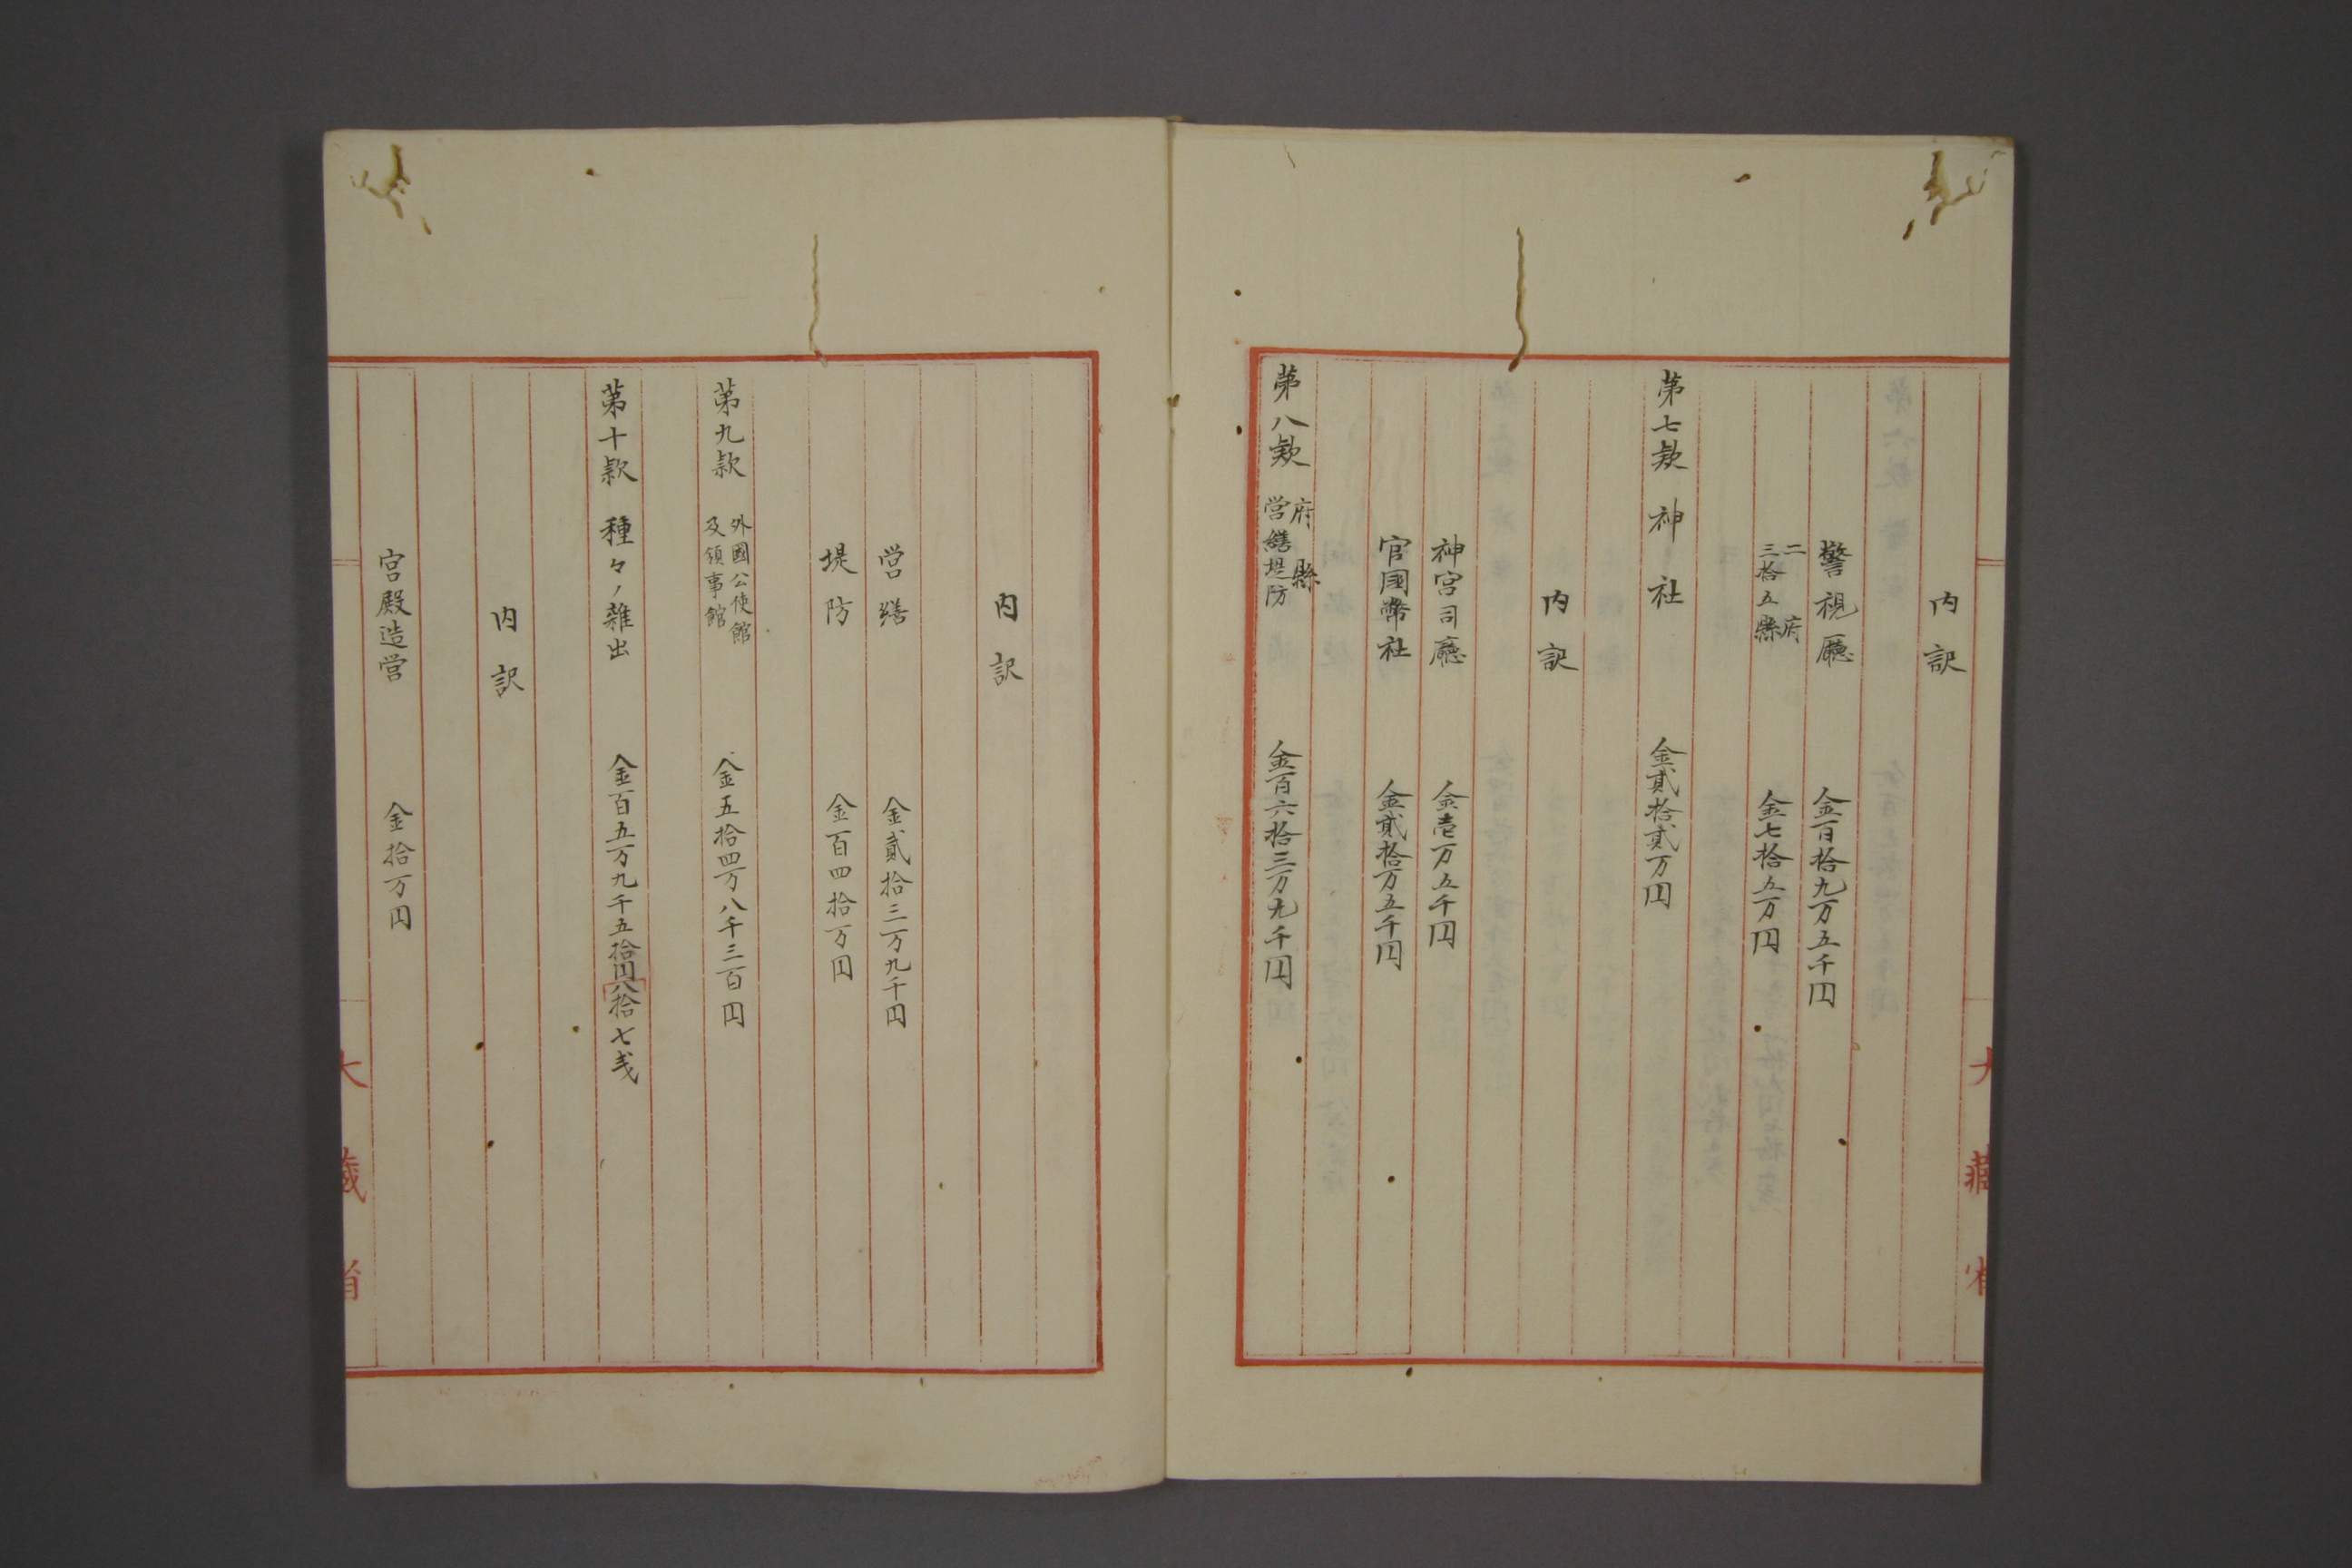 内訳
警視廳 金百拾九万五千円
二府三拾五縣 金七拾五万円
第七款 神社 金貳拾貳万円
内訳
神宮司廳 金壱万五千円
官國幣社 金貳拾万五千円
第八款 府縣営繕堤防 金百六拾三万九千円
大藏省
内訳
営繕 金貳拾三万九千円
堤防 金百四拾万円
第九款 外國公使館及領事館 金五拾四万八千三百円
第十款 種々ノ雑出 金百五万九千五拾円八拾七戋
内訳
宮殿造営 金拾万円
大藏省